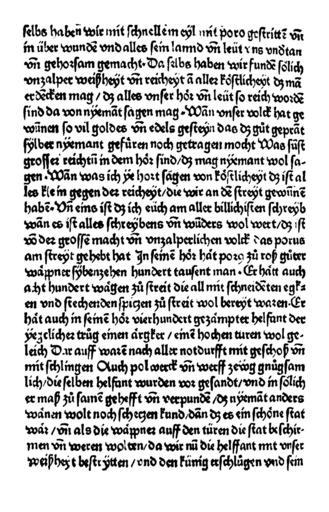 selbs haben wir mit schnellem eyl mit poro gestritten vñ
in über wunde vnd alles sein lannd vñ leüt vns vndtan
vñ gehorsam gemacht · Da selbs haben wir funde sölich
vnzalper weißheyt vñ reicheyt ā aller köstlicheyt dz mā
erdēcken mag / dz alles vnser hör vñ leüt so reich wordē
sind da von nyemāt sagen mag · Wān vnser volck hat ge
wūnen so vil goldes vñ edels gesteyn das dz gūt geprāt
sylber nyemant gefüren noch getragen mocht Was süst
grosser reichtū in dem hör sind / dz mag nyemant wol sa-
gen · Wān was ich ye hort sagen von köstlicheyt dz ist al
les klein gegen der reicheyt / die wir an dē streyt gewūnē
habē · Vñ eins ist dz ich eüch am aller billichistē schreyb
wān es ist alles schreybens vñ wūders wol wert / dz ist
vō der grossen macht vñ vnzalperlichen volck das porus
am streyt gehebt hat In seinē hör hāt porꝰ zū roß gūter
wāppner sybenzehen hundert tausent man · Er hāt auch
acht hundert wāgen zū streit die all mit schneidēn egk-
en vnd stechenden spiczen zū streit wol bereyt waren · Er
hāt auch in seinē hör vierhundert gezāmpter helfant der
yeczlicher trūg einen ārgker / einē hochen turen wol ge-
leich Dar auff warē nach aller notdurfft mit geschoß vñ
mit schlingen Auch pol werck vñ werff zeŵg gnūgsam
lich / die selben helfant wurden vor gesandt / vnd in sölich
er maß zū samē gehefft vñ verpundē / dz nyemāt anders
wānen wolt noch schetzen kund / dān dz es ein schöne stat
wār / vñ als die wāppner auff den türen die stat beschir-
men vñ weren wolten / da wir nū die helffant mit vnser
weißheyt bestrytten / vnd den künig erschlūgen vnd sein